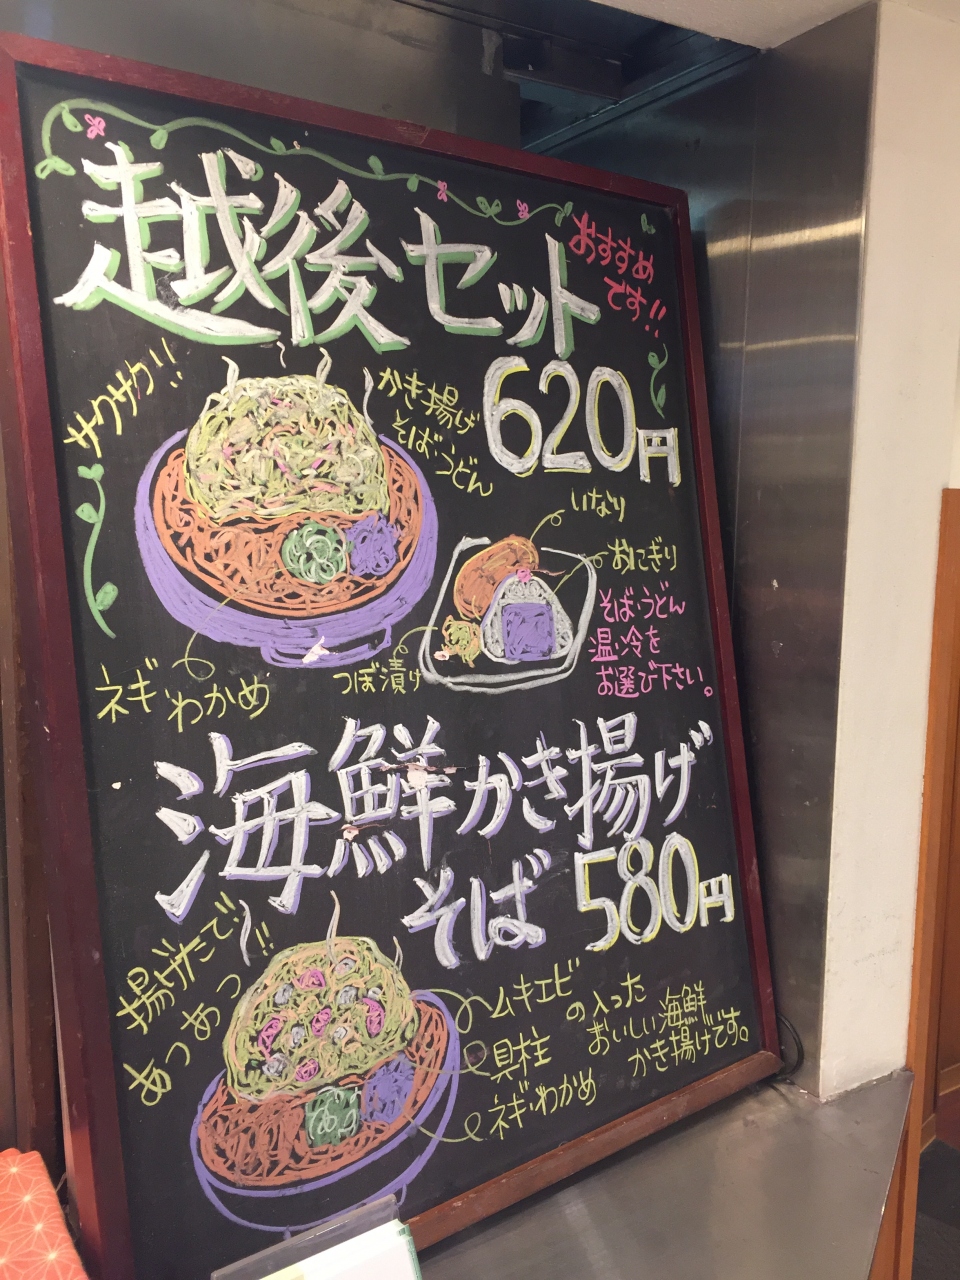 越後セット
おすすめ
です!!
サクサク!!
かき揚げ
そば・うどん
620円
いなり
おにぎり
そば・うどん
温・冷を
お選び下さい。
つぼ漬け
ネギ わかめ
海鮮かき揚げ
そば 580円
揚げたて!!
あつあっつ!!
ムキエビ
貝柱
ネギ・わかめ
の入った
おいしい海鮮
かき揚げです。